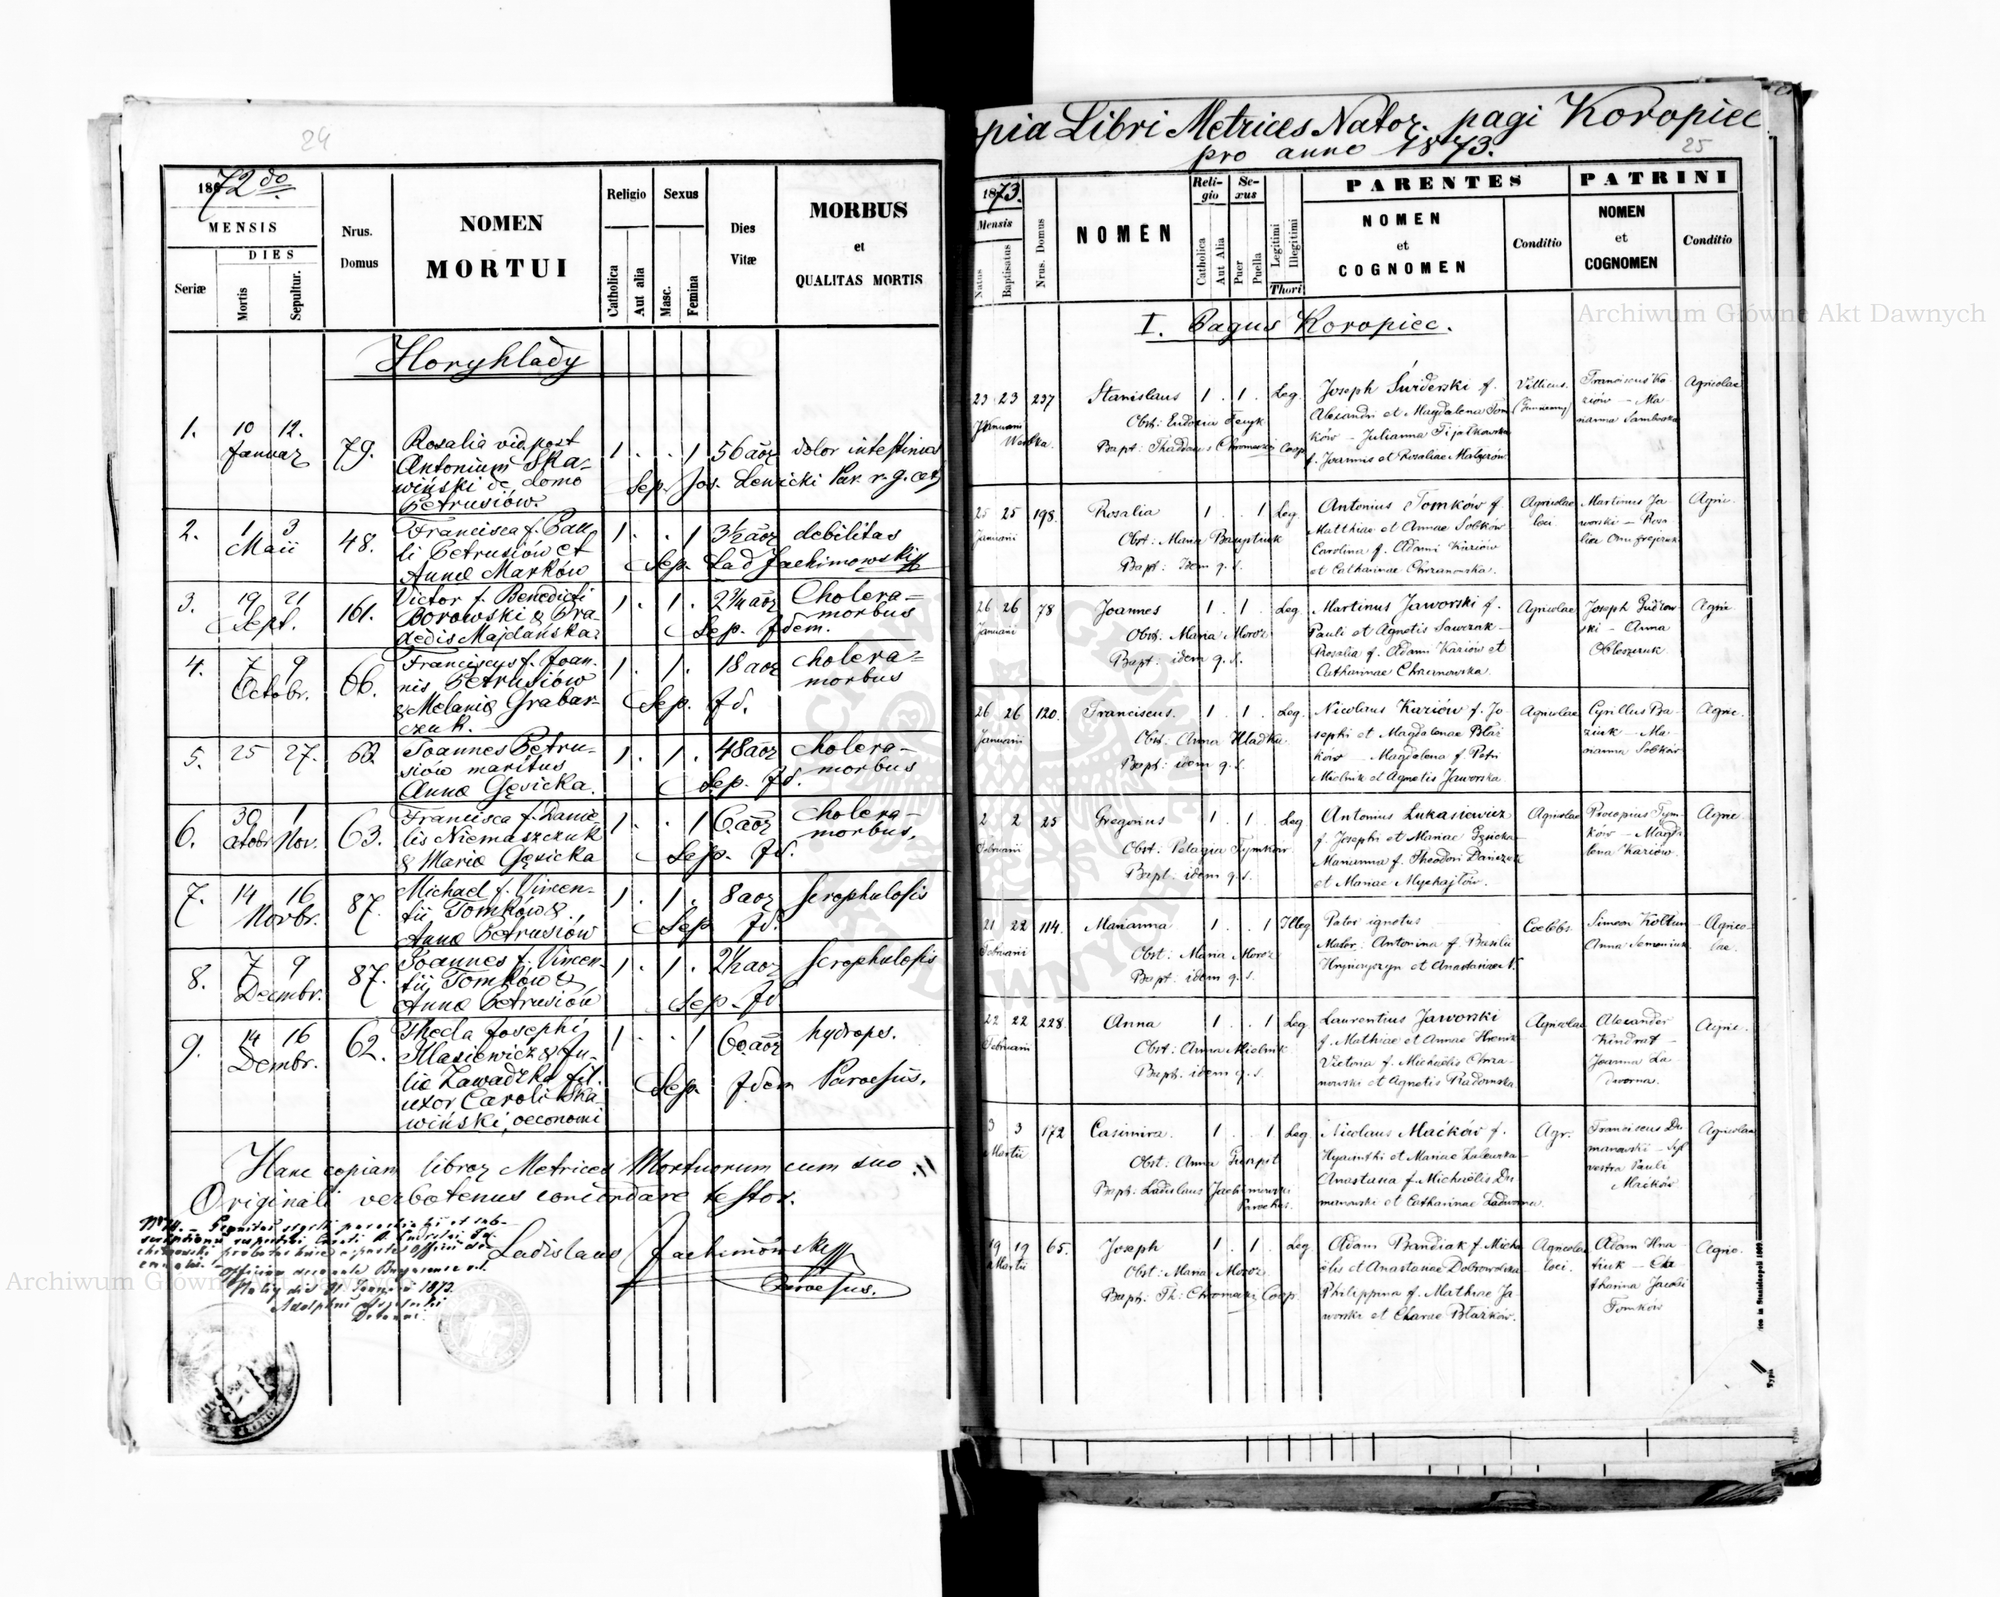 24
1872do
MENSIS
DIES
Seriæ
Mortis
Sepultur.
Nrus.
Domus
NOMEN
MORTUI
Religio
Catholica
Aut alia
Sexus
Masc.
Femina
Dies
Vitæ
MORBUS
et
QUALITAS MORTIS
Horyhlady
1. 10 12. Januar 79.
Rosalia vid. post
Antonium Ska-
wiński de domo
Petrusiów.
1 . . 1 56 aor dolor intestinor
Sep. Jos. Lewicki Par. r. g. cat.
2. 1 3 Maii 48.
Francisca f. Pau-
li Petrusiów et
Annæ Marków
1 . . 1 3½ aor debilitas
Sep. Lad Jachimowski
3. 19 21 Sept. 161.
Victor f. Benedicti
Borowski & Pra-
xedis Majdańska
1 . 1 . 2¼ aor Cholera-
morbus
Sep. Idem.
4. 7 9 Octobr. 66.
Franciscus f. Joan-
nis Petrusiów
& Melaniæ Grabar-
czuk.
1 . 1 . 18 aor cholera-
morbus
Sep. Id.
5. 25 27. 63.
Joannes Petru-
siów maritus
Annæ Gęsicka.
1 . 1 . 48 aor cholera-
morbus
Sep. Id.
6. 30 Octobr 1 Nov. 63.
Francisca f. Danie-
lis Niemaszczuk
& Mariæ Gęsicka
1 . . 1 6 aor cholera-
morbus.
Sep. Id.
7. 14 16 Novbr. 87.
Michael f. Vincen-
tii Tomków &
Annæ Petrusiów
1 . 1 . 8 aor scrophulosis
Sep. Id.
8. 7 9 Decembr. 87.
Joannes f. Vincen-
tii Tomków &
Annæ Petrusiów
1 . 1 . 2½ aor scrophulosis
Sep. Id
9. 14 16 Dembr. 62.
Thecla Josephi
Illasiewicz & Ju-
liæ Zawadzka fil.
uxor Caroli Ska-
wiński, oeconomi
1 . . 1 60 aor hydrops.
Sep. Idem Parochus.
Hanc copiam libror Metrices Mortuorum cum suo
Originali verbotenus concordare testor.
Ladislaus Jachimowski
Parochus.
opia Libri Metrices Nator. pagi Koropiec
pro anno 1873.
25
1873.
Mensis
Natus
Baptisatus
Nrus. Domus
NOMEN
Reli-
gio
Catholica
Aut Alia
Se-
xus
Puer
Puella
Legitimi
Illegitimi
Thori
PARENTES
NOMEN
et
COGNOMEN
Conditio
PATRINI
NOMEN
et
COGNOMEN
Conditio
I. Pagus Koropiec.
23 23 237 Stanislaus 1 . 1 . Leg.
Januarii
Bapt: Thaddaeus Chromecki Coop
Joseph f.
Alexandri et Magdalena Tom-
ków – Julianna Fijałkowska
f. Joannis et Rosaliae
Villicus
Franciscus Ko-
ziów – Ma-
rianna Samborska
Agricolae
25 25 198. Rosalia 1 . . 1 Leg.
Januarii
Obst: Maria
Bapt: Idem q. s.
Antonius Tomków f.
Matthiae et Annae Sobków
Carolina f. Adami Kaziów
et Catharinae Chrzanowska.
Agricolae
loci.
Martinus Ja-
worski – Rosa-
lia Onufrejczuk
Agric.
26 26 78 Joannes 1 . 1 . Leg.
Januarii
Obst: Maria Moroz
Bapt: idem q. s.
Martinus Jaworski f.
Pauli et Agnetis Sawczuk –
Rosalia f. Adami Kaziów et
Catharinae Chrzanowska.
Agricolae
Joseph
ski – Anna
Agric.
26 26 120. Franciscus. 1 . 1 . Leg.
Januarii
Obst: Anna Hladka
Bapt: idem q. s.
Nicolaus Kaziów f. Jo-
sephi et Magdalenae Błaż-
ków – Magdalena f. Petri
Mielnik et Agnetis Jaworska
Agricolae
Cyrillus Ba-
ziuk – Ma-
rianna Sobków
Agric.
2 2 25 Gregorius 1 . 1 . Leg
Februarii
Obst: Pelagia Tymków
Bapt. idem q. s.
Antonius Łukasiewicz
f. Josephi et Mariae Gęsicka
Marianna f. Theodori
et Mariae Mychajłów.
Agricolae
Procopius Tym-
ków – Magda-
lena Kaziów.
Agric.
21 22 114. Marianna 1 . . 1 Illeg
Februarii
Obst: Maria Moroz
Bapt: idem q. s.
Pater ignotus
Mater: Antonina f. Basilii
Hryńczyszyn et Anastasiae N.
Coelebs.
Simeon Kołtun
Anna Semeniuk
Agrico-
lae.
22 22 228. Anna 1 . . 1 Leg.
Februarii
Obst: Anna Mielnik
Bapt: idem q. s.
Laurentius Jaworski
f. Mathiae et Annae
Victoria f. Michaelis Chrza-
nowski et Agnetis Radomska.
Agricolae
Alexander
Kindrat –
Joanna La-
dworna.
Agric.
3 3 172 Casimira. 1 . . 1 Leg.
Martii
Obst: Anna
Bapt: Ladislaus Jachimowski
Parochus.
Nicolaus Maćków f.
Hyacinthi et Mariae Zalewska –
Anastasia f. Michaelis Du-
manowski et Catharinae Ladworna.
Agr.
Franciscus Du-
manowski – Syl-
vestra Pauli
Maćków
Agricolae
19 19 65. Joseph 1 . 1 . Leg
Martii
Obst: Maria Moroz
Bapt: Th: Chromecki Coop.
Adam Bandiak f. Micha-
elis et Anastasiae Dobrowolska
Philippina f. Mathiae Ja-
worski et Clarae Błażków.
Agricolae
loci.
Adam Hna-
tiuk – Ca-
tharina Jacobi
Tomków
Agric.
Archiwum Główne Akt Dawnych
Archiwum Główne Akt Dawnych
ARCHIWUM GŁÓWNE AKT DAWNYCH